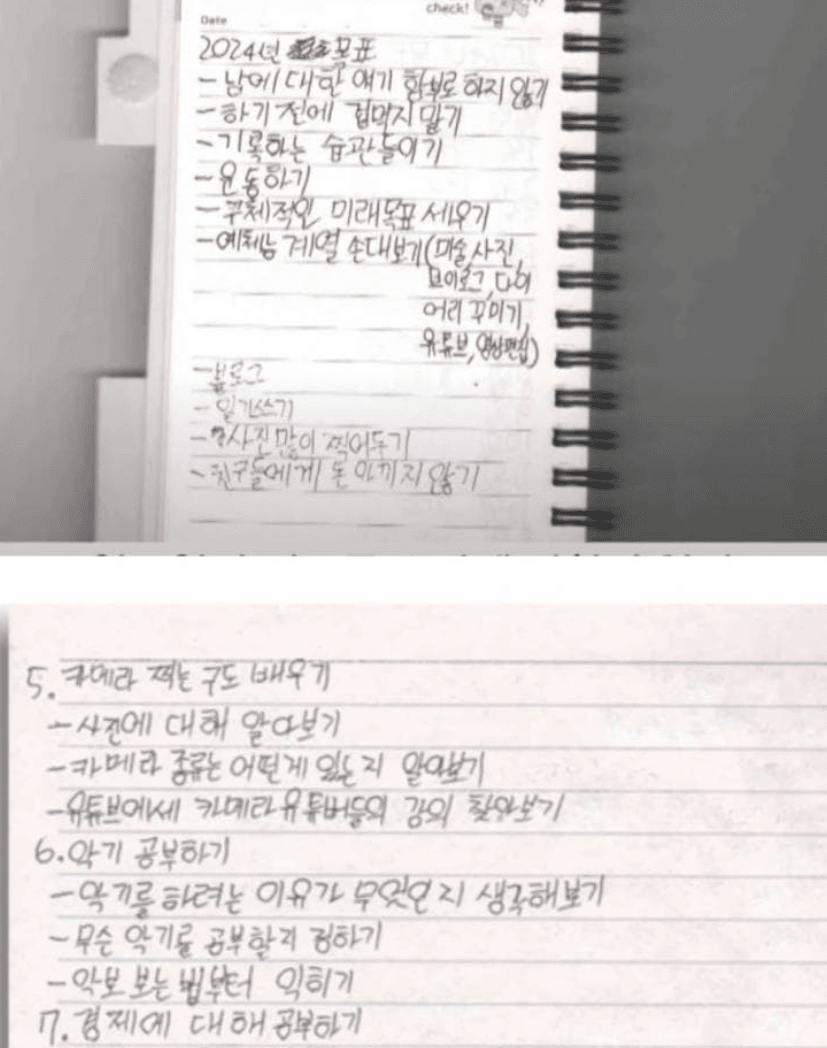 check!
Date
2024년 목표
- 남에 대한 얘기 함부로 하지 않기
- 하기 전에 겁먹지 말기
- 기록하는 습관들이기
- 운동하기
- 구체적인 미래목표 세우기
- 예체능 계열 손대보기(미술,사진,
브이로그,다이
어리 꾸미기,
유튜브,영상편집)
- 블로그
- 일기쓰기
- 사진 많이 찍어두기
- 친구들에게 돈 아끼지 않기
5. 카메라 찍는 구도 배우기
- 사진에 대해 알아보기
- 카메라 종류는 어떤게 있는지 알아보기
- 유튜브에세 카메라 유튜버들의 강의 찾아보기
6. 악기 공부하기
- 악기를 하려는 이유가 무엇인지 생각해보기
- 무슨 악기를 공부할지 정하기
- 악보 보는 법부터 익히기
7. 경제에 대해 공부하기